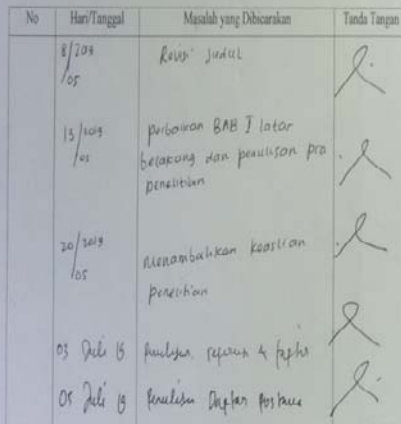 No Hari/Tanggal Masalah yang Dibicarakan Tanda Tangan
8/2019 Revisi Judul
/05
13/2019 perbaikan BAB I latar
/05 belakang dan penulisan pro
penelitian
20/2019
/05 Menambahkan keaslian
penelitian
03 Juli 19 Penulisan, referensi &
05 Juli 19 Penulisan Daptar Pustaka